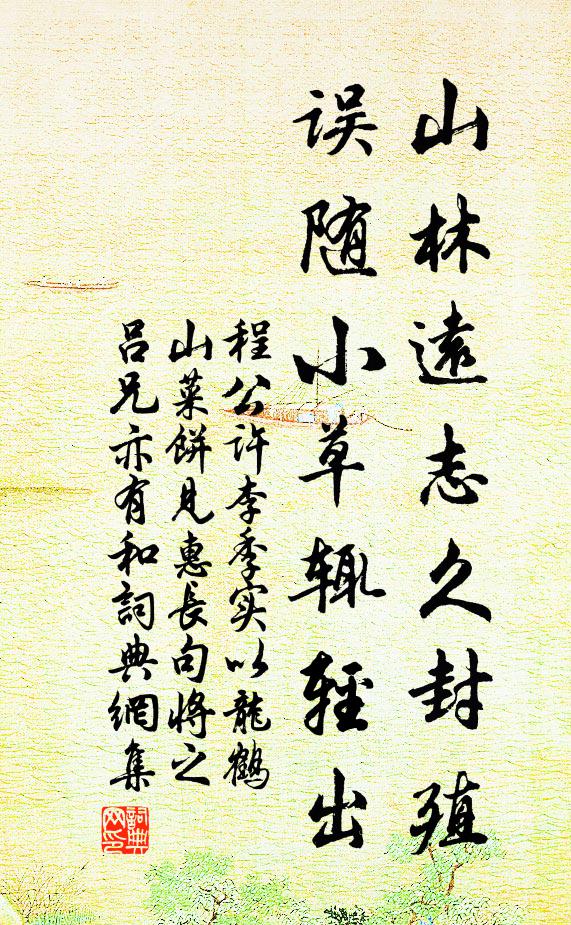 山林遠志久封殖
误随小草辄輕出
程公许李季实以龍鶴
山菜餅見惠長句將之
吕兄亦有和詞典網集
詞典
网印